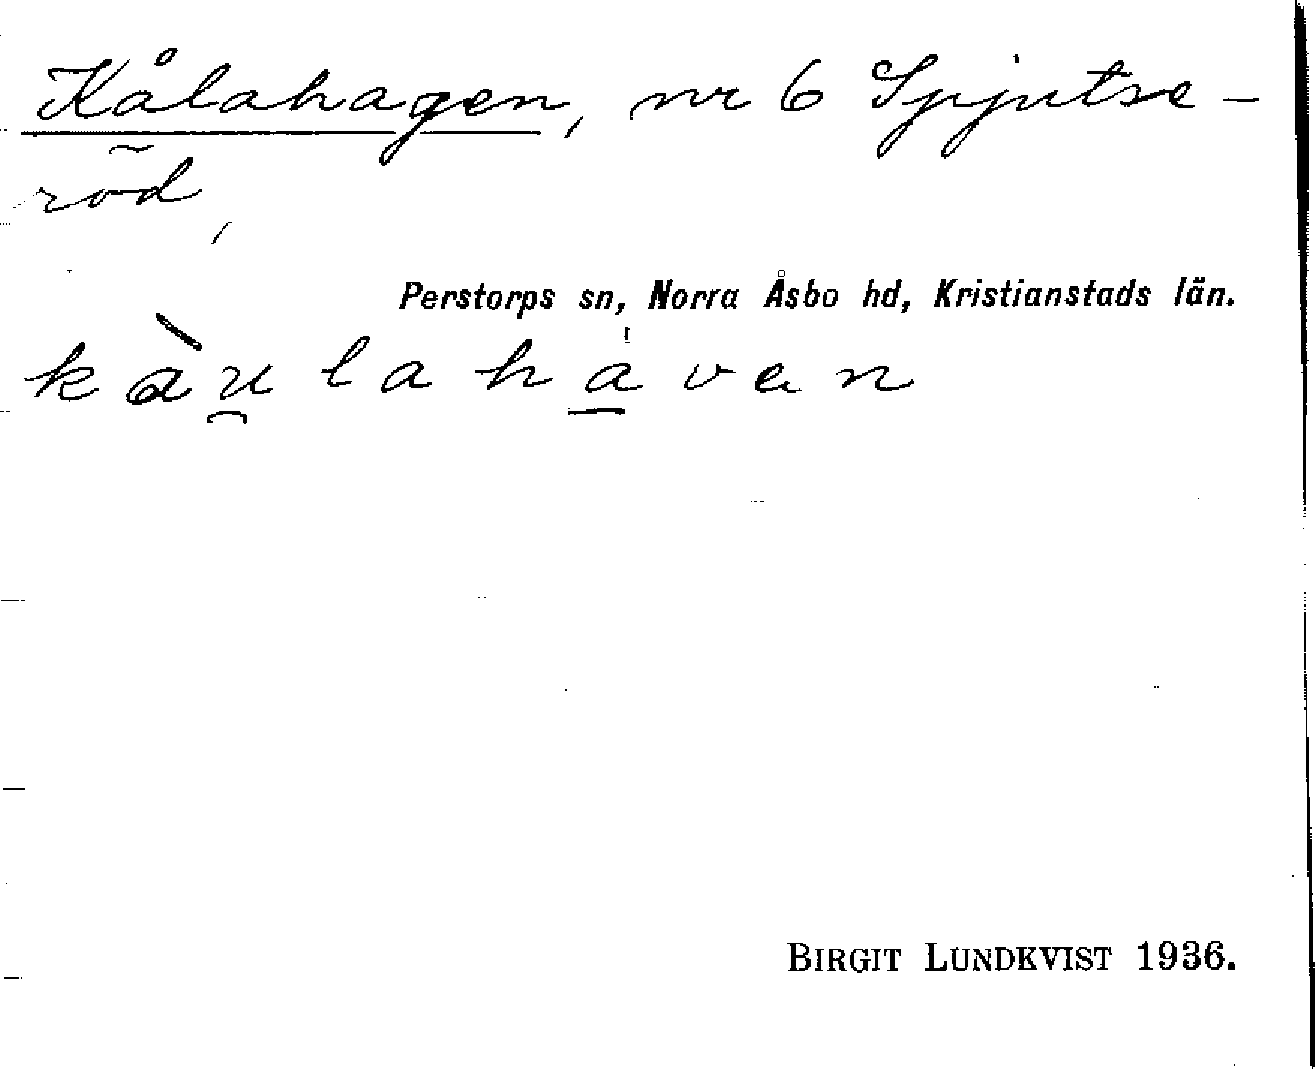 Kålahagen, nr 6 Spjutse-
röd,
Perstorps sn, Norra Åsbo hd, Kristianstads län.
kàu̯laha̲ven
BIRGIT LUNDKVIST 1936.